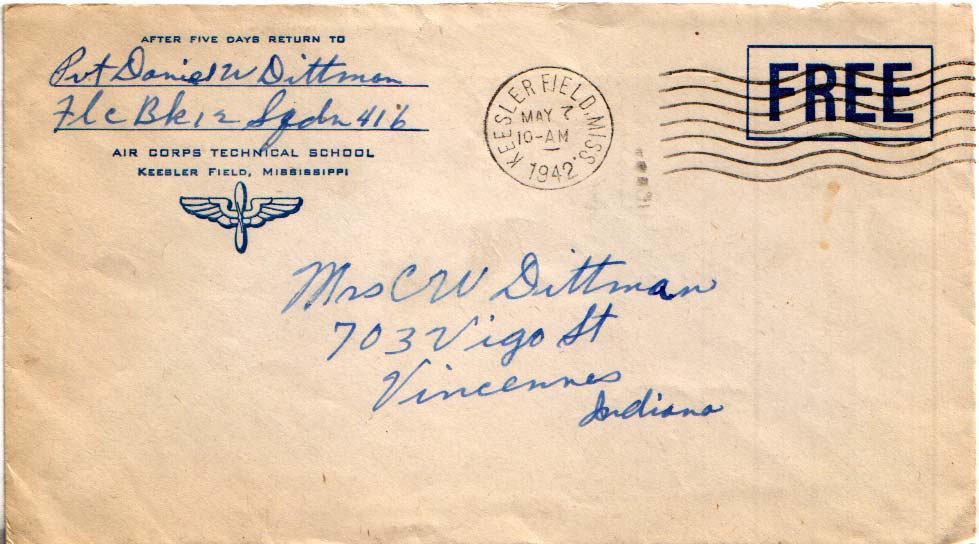 AFTER FIVE DAYS RETURN TO
Pvt Daniel W Dittman
Flc Bk 12 Sqdn 416
AIR CORPS TECHNICAL SCHOOL
KEESLER FIELD, MISSISSIPPI
KEESLER FIELD, MISS.
MAY 7
10-AM
1942
FREE
Mrs C W Dittman
703 Vigo St
Vincennes
Indiana